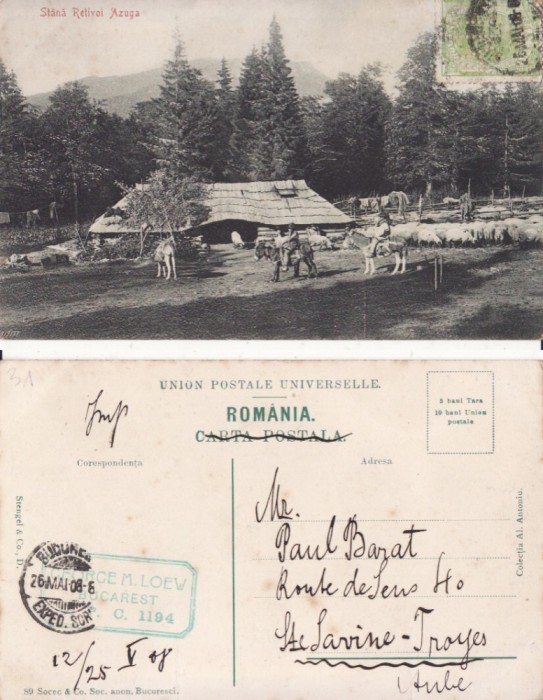 Stână Retivoi Azuga
31
UNION POSTALE UNIVERSELLE.
ROMÂNIA.
CARTA POSTALA.
5 bani Tara
10 bani Union
postale
Imp
Corespondenţa
Adresa
Mr.
Paul Barat
Route de Sens 40
Ste Savine - Troyes
(Aube)
Stengel & Co., D.
Colecţia Al. Antoniu.
BUCUREŞ
26 MAI 08-8
EXPED. SCRI
GEORGE M. LOEW
BUCAREST
C. 1194
12/25 V 08
89 Socec & Co. Soc. anon. Bucuresci.